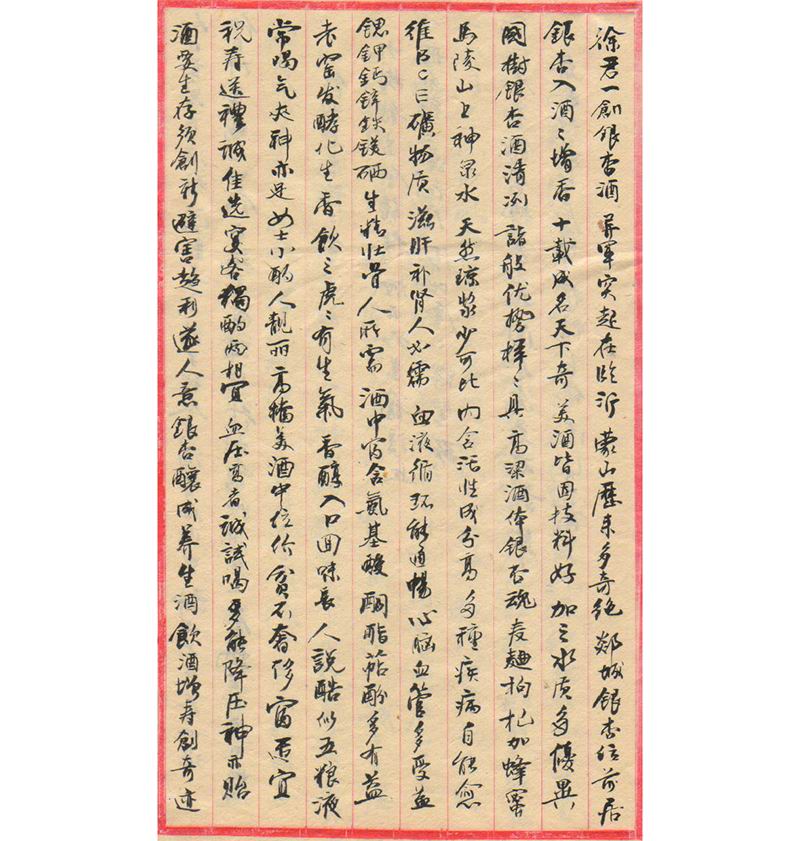 徐君一創銀杏酒 异軍突起在临沂 蒙山歷来多奇绝 郯城銀杏位前居
銀杏入酒酒増香 十載成名天下奇 美酒皆因技料好 加之水质多優異
國樹銀杏酒清冽 諸般优势樣樣具 高梁酒体銀杏魂 麦麯枸杞加蜂蜜
馬陵山上神泉水 天然琼漿少可比 内含活性成分高 多種疾病自能愈
維BCE礦物质 滋肝补肾人必需 血液循环能通暢 心脑血管多受益
锶钾鈣鋅鉄镁硒 生精壮骨人所需 酒中富含氨基酸 酮酯萜酚多有益
老窖发酵化生香 飲之虎虎有生氣 香醇入口回味長 人説酷似五粮液
常喝气爽神亦足 女士小酌人靓丽 高檔美酒中位价 貧不奢侈富适宜
祝寿送禮誠佳选 宴客獨酌两相宜 血压高者诚試喝 多能降压神亦贻
酒要生存须創新 避害趋利遂人意 銀杏釀成养生酒 飲酒增寿創奇迹